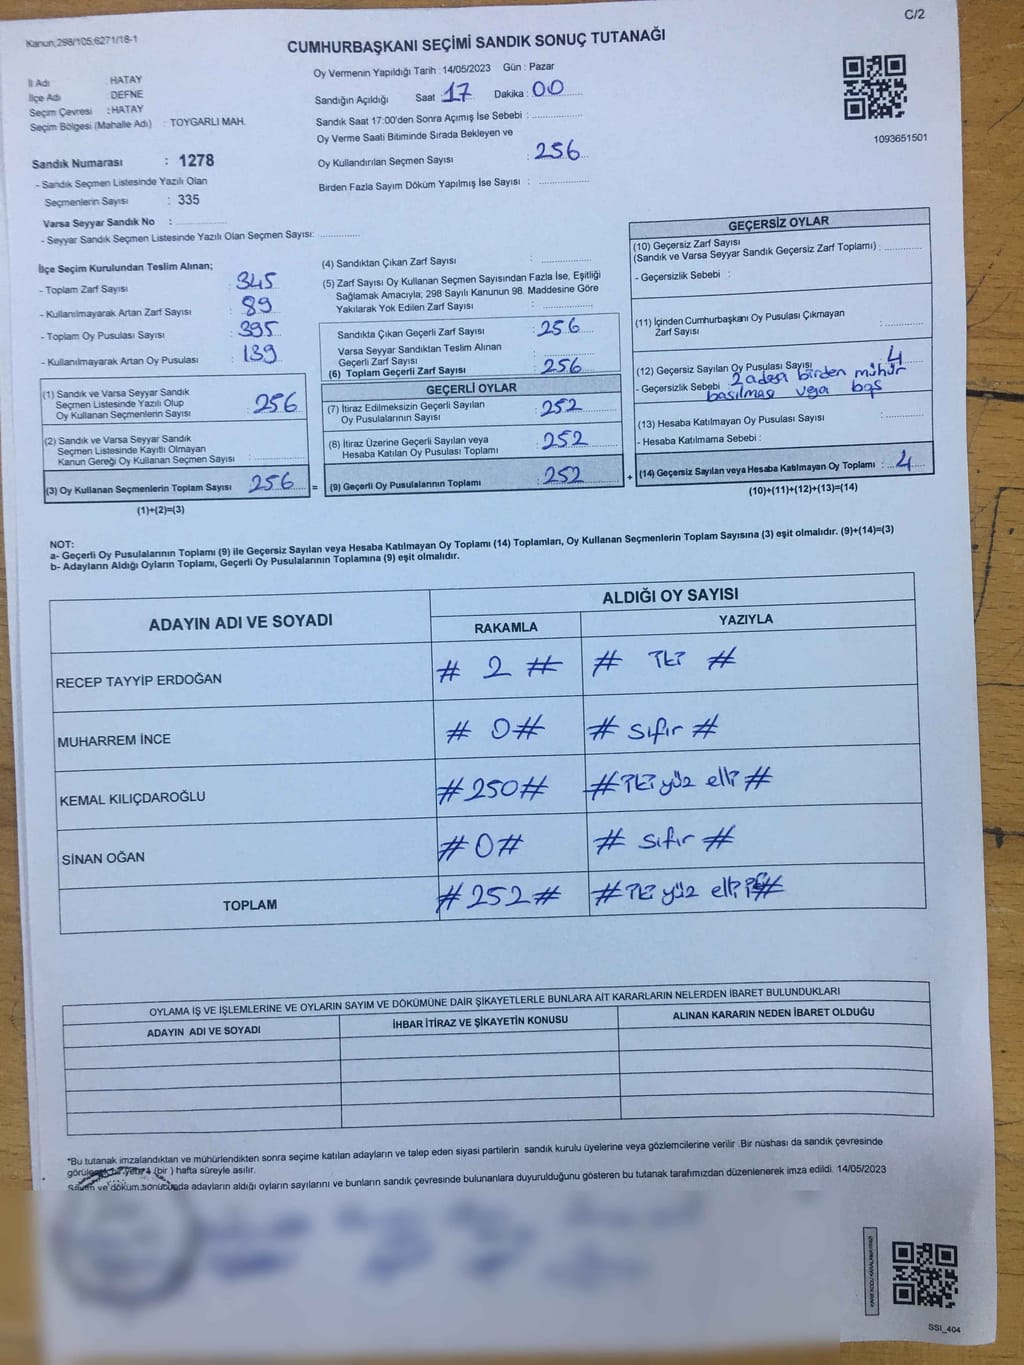 C/2
Kanun;298/105;6271/18-1
CUMHURBAŞKANI SEÇİMİ SANDIK SONUÇ TUTANAĞI
İl Adı : HATAY
İlçe Adı : DEFNE
Seçim Çevresi : HATAY
Seçim Bölgesi (Mahalle Adı) : TOYGARLI MAH.
Sandık Numarası : 1278
- Sandık Seçmen Listesinde Yazılı Olan
Seçmenlerin Sayısı : 335
Varsa Seyyar Sandık No :
- Seyyar Sandık Seçmen Listesinde Yazılı Olan Seçmen Sayısı:
Oy Vermenin Yapıldığı Tarih :14/05/2023 Gün : Pazar
Sandığın Açıldığı Saat : 17 Dakika : 00
Sandık Saat 17:00'den Sonra Açımış İse Sebebi :
Oy Verme Saati Bitiminde Sırada Bekleyen ve
Oy Kullandırılan Seçmen Sayısı : 256
Birden Fazla Sayım Döküm Yapılmış İse Sayısı :
1093651501
İlçe Seçim Kurulundan Teslim Alınan;
- Toplam Zarf Sayısı : 345
- Kullanılmayarak Artan Zarf Sayısı : 89
- Toplam Oy Pusulası Sayısı : 395
- Kullanılmayarak Artan Oy Pusulası : 139
(1) Sandık ve Varsa Seyyar Sandık
Seçmen Listesinde Yazılı Olup
Oy Kullanan Seçmenlerin Sayısı : 256
(2) Sandık ve Varsa Seyyar Sandık
Seçmen Listesinde Kayıtlı Olmayan
Kanun Gereği Oy Kullanan Seçmen Sayısı :
(3) Oy Kullanan Seçmenlerin Toplam Sayısı : 256 =
(1)+(2)=(3)
(4) Sandıktan Çıkan Zarf Sayısı :
(5) Zarf Sayısı Oy Kullanan Seçmen Sayısından Fazla İse, Eşitliği
Sağlamak Amacıyla; 298 Sayılı Kanunun 98. Maddesine Göre
Yakılarak Yok Edilen Zarf Sayısı :
Sandıkta Çıkan Geçerli Zarf Sayısı : 256
Varsa Seyyar Sandıktan Teslim Alınan
Geçerli Zarf Sayısı :
(6) Toplam Geçerli Zarf Sayısı : 256
GEÇERLİ OYLAR
(7) İtiraz Edilmeksizin Geçerli Sayılan
Oy Pusulalarının Sayısı : 252
(8) İtiraz Üzerine Geçerli Sayılan veya
Hesaba Katılan Oy Pusulası Toplamı : 252
(9) Geçerli Oy Pusulalarının Toplamı : 252 +
GEÇERSİZ OYLAR
(10) Geçersiz Zarf Sayısı
(Sandık ve Varsa Seyyar Sandık Geçersiz Zarf Toplamı) :
- Geçersizlik Sebebi :
(11) İçinden Cumhurbaşkanı Oy Pusulası Çıkmayan
Zarf Sayısı :
(12) Geçersiz Sayılan Oy Pusulası Sayısı : 4
- Geçersizlik Sebebi 2 adesi birden mühür
basılması veya boş
(13) Hesaba Katılmayan Oy Pusulası Sayısı :
- Hesaba Katılmama Sebebi :
(14) Geçersiz Sayılan veya Hesaba Katılmayan Oy Toplamı : 4
(10)+(11)+(12)+(13)=(14)
NOT:
a- Geçerli Oy Pusulalarının Toplamı (9) ile Geçersiz Sayılan veya Hesaba Katılmayan Oy Toplamı (14) Toplamları, Oy Kullanan Seçmenlerin Toplam Sayısına (3) eşit olmalıdır. (9)+(14)=(3)
b- Adayların Aldığı Oyların Toplamı, Geçerli Oy Pusulalarının Toplamına (9) eşit olmalıdır.
ADAYIN ADI VE SOYADI
ALDIĞI OY SAYISI
RAKAMLA YAZIYLA
RECEP TAYYİP ERDOĞAN # 2 # # iki #
MUHARREM İNCE # 0 # # sıfır #
KEMAL KILIÇDAROĞLU #250# # iki yüz elli #
SİNAN OĞAN #0# # sıfır #
TOPLAM #252# # iki yüz elli iki #
OYLAMA İŞ VE İŞLEMLERİNE VE OYLARIN SAYIM VE DÖKÜMÜNE DAİR ŞİKAYETLERLE BUNLARA AİT KARARLARIN NELERDEN İBARET BULUNDUKLARI
ADAYIN ADI VE SOYADI İHBAR İTİRAZ VE ŞİKAYETİN KONUSU ALINAN KARARIN NEDEN İBARET OLDUĞU
*Bu tutanak imzalandıktan ve mühürlendikten sonra seçime katılan adayların ve talep eden siyasi partilerin sandık kurulu üyelerine veya gözlemcilerine verilir .Bir nüshası da sandık çevresinde
bir yere 1 (bir ) hafta süreyle asılır.
Sayım ve döküm sonucunda adayların aldığı oyların sayılarını ve bunların sandık çevresinde bulunanlara duyurulduğunu gösteren bu tutanak tarafımızdan düzenlenerek imza edildi. 14/05/2023
SSI_404